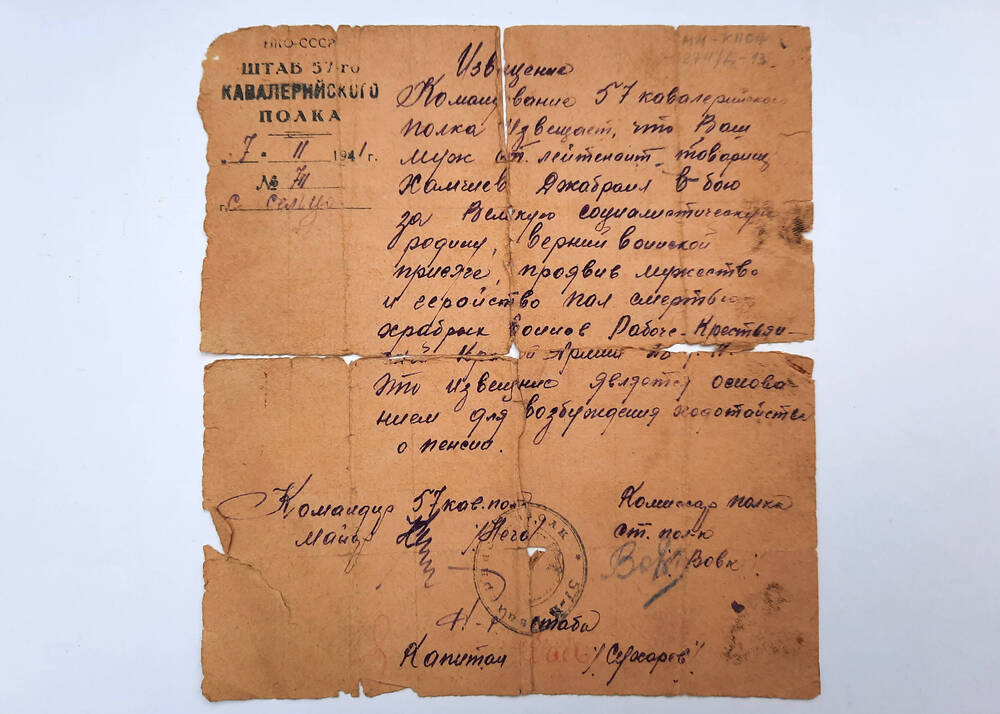 НКО-СССР
ШТАБ 57-го
КАВАЛЕРИЙСКОГО
ПОЛКА
7 · 11 1941 г.
№ 71
с. сельцо
ММ-КПОФ
274/Д-13
Извещение
Командование 57 кавалерийского
полка извещает, что Ваш
муж ст. лейтенант товарищ
Хамчиев Джабраил в бою
за Великую социалистическую
родину, верный воинской
присяге, проявив мужество
и геройство пал смертью
храбрых воинов Рабоче-Крестьян-
ской Красной Армии
Это извещение является основа-
нием для возбуждения ходотайства
о пенсии.
Командир 57 кав. полка
Майор /Него/
Комиссар полка
ст. пол-к
Вовк /Вовк/
57-й полк
Н-к штаба
Капитан /Сухарев/